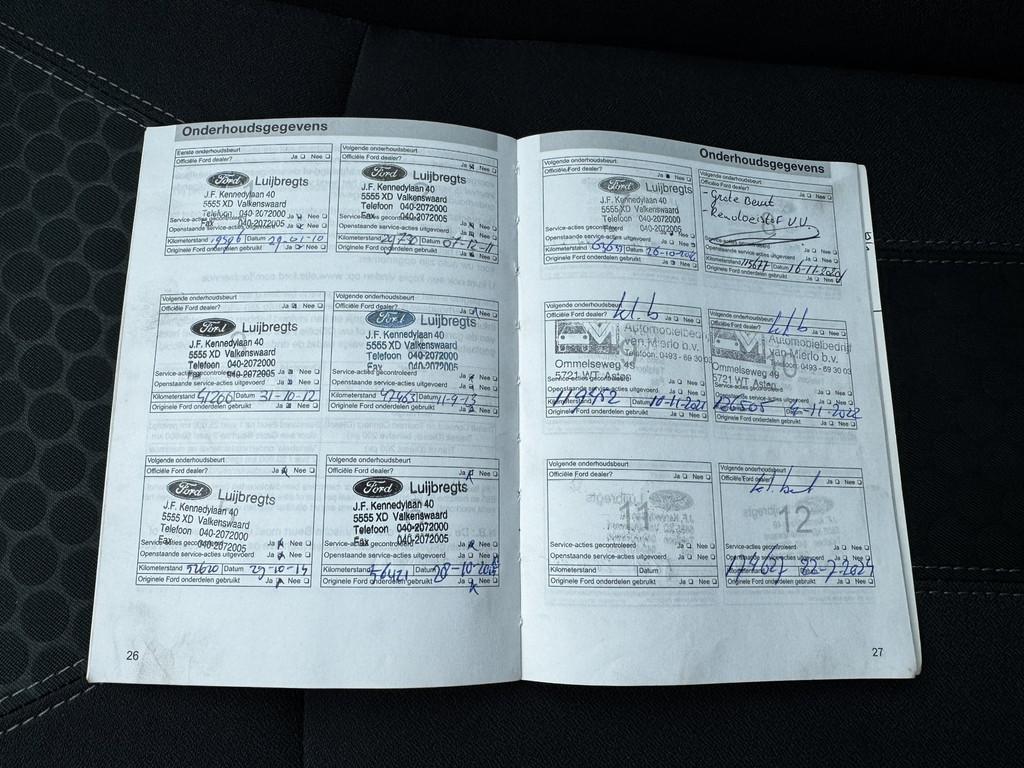 Onderhoudsgegevens
Eerste onderhoudsbeurt
Officiële Ford dealer? Ja Nee
Ford Luijbregts
J.F. Kennedylaan 40
5555 XD Valkenswaard
Telefoon 040-2072000
Fax 040-2072005
Service-acties gecontroleerd Ja Nee
Openstaande service-acties uitgevoerd Ja Nee
Kilometerstand Datum 29-01-10
Originele Ford onderdelen gebruikt Ja Nee
Volgende onderhoudsbeurt
Officiële Ford dealer? Ja Nee
Ford Luijbregts
J.F. Kennedylaan 40
5555 XD Valkenswaard
Telefoon 040-2072000
Fax 040-2072005
Service-acties gecontroleerd Ja Nee
Openstaande service-acties uitgevoerd Ja Nee
Kilometerstand Datum 01-12-11
Originele Ford onderdelen gebruikt Ja Nee
Volgende onderhoudsbeurt
Officiële Ford dealer? Ja Nee
Ford Luijbregts
J.F. Kennedylaan 40
5555 XD Valkenswaard
Telefoon 040-2072000
Fax 040-2072005
Service-acties gecontroleerd Ja Nee
Openstaande service-acties uitgevoerd Ja Nee
Kilometerstand 41266 Datum 31-10-12
Originele Ford onderdelen gebruikt Ja Nee
Volgende onderhoudsbeurt
Officiële Ford dealer? Ja Nee
Ford Luijbregts
J.F. Kennedylaan 40
5555 XD Valkenswaard
Telefoon 040-2072000
Fax 040-2072005
Service-acties gecontroleerd Ja Nee
Openstaande service-acties uitgevoerd Ja Nee
Kilometerstand 47463 Datum 11-9-13
Originele Ford onderdelen gebruikt Ja Nee
Volgende onderhoudsbeurt
Officiële Ford dealer? Ja Nee
Ford Luijbregts
J.F. Kennedylaan 40
5555 XD Valkenswaard
Telefoon 040-2072000
Fax 040-2072005
Service-acties gecontroleerd Ja Nee
Openstaande service-acties uitgevoerd Ja Nee
Kilometerstand 52620 Datum 29-10-14
Originele Ford onderdelen gebruikt Ja Nee
Volgende onderhoudsbeurt
Officiële Ford dealer? Ja Nee
Ford Luijbregts
J.F. Kennedylaan 40
5555 XD Valkenswaard
Telefoon 040-2072000
Fax 040-2072005
Service-acties gecontroleerd Ja Nee
Openstaande service-acties uitgevoerd Ja Nee
Kilometerstand 56421 Datum
Originele Ford onderdelen gebruikt Ja Nee
26
Onderhoudsgegevens
Volgende onderhoudsbeurt
Officiële Ford dealer? Ja Nee
Ford Luijbregts
J.F. Kennedylaan 40
5555 XD Valkenswaard
Telefoon 040-2072000
Fax 040-2072005
Service-acties gecontroleerd Ja Nee
Openstaande service-acties uitgevoerd Ja Nee
Kilometerstand Datum
Originele Ford onderdelen gebruikt Ja Nee
Volgende onderhoudsbeurt
Officiële Ford dealer? Ja Nee
- Grote Beurt
- Remvloeistof V.V.
Service-acties gecontroleerd Ja Nee
Openstaande service-acties uitgevoerd Ja Nee
Kilometerstand 115677 Datum
Originele Ford onderdelen gebruikt Ja Nee
Volgende onderhoudsbeurt
kl.b
Officiële Ford dealer? Ja Nee
Automobielbedrijf
van Mierlo b.v.
Telefoon: 0493 - 69 30 03
Ommelseweg 49
5721 WT Asten
Service-acties gecontroleerd Ja Nee
Openstaande service-acties uitgevoerd Ja Nee
Kilometerstand 119382 Datum 10-11-2021
Originele Ford onderdelen gebruikt Ja Nee
Volgende onderhoudsbeurt
kl.b
Officiële Ford dealer? Ja Nee
10
Automobielbedrijf
van Mierlo b.v.
Telefoon: 0493 - 69 30 03
Ommelseweg 49
5721 WT Asten
Service-acties gecontroleerd Ja Nee
Openstaande service-acties uitgevoerd Ja Nee
Kilometerstand 126505 Datum
Originele Ford onderdelen gebruikt Ja Nee
Volgende onderhoudsbeurt
Officiële Ford dealer? Ja Nee
11
Service-acties gecontroleerd Ja Nee
Openstaande service-acties uitgevoerd Ja Nee
Kilometerstand Datum
Originele Ford onderdelen gebruikt Ja Nee
Volgende onderhoudsbeurt
Officiële Ford dealer? Ja Nee
kl. beurt
12
Service-acties gecontroleerd Ja Nee
Openstaande service-acties uitgevoerd Ja Nee
Kilometerstand Datum 22-7-2024
Originele Ford onderdelen gebruikt Ja Nee
27